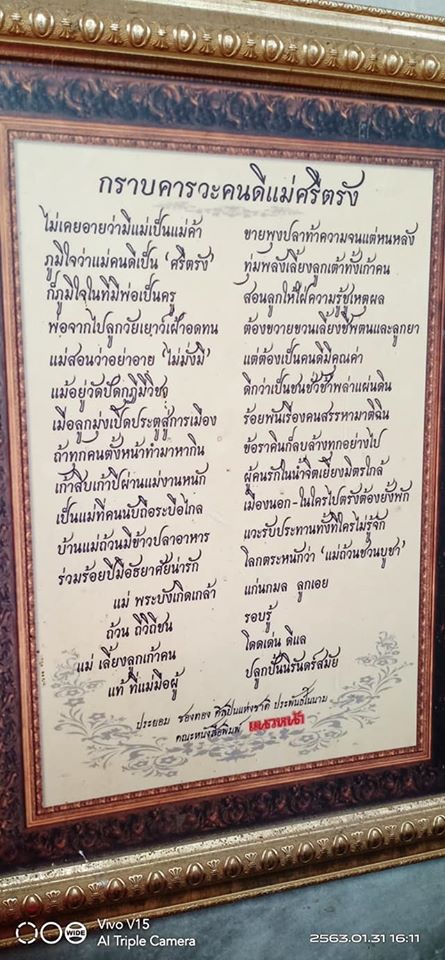 กราบคารวะคนดีแม่ศรีตรัง
ไม่เคยอายว่ามีแม่เป็นแม่ค้า ขายพุงปลาท้าความจนแต่หนหลัง
ภูมิใจว่าแม่คนดีเป็น 'ศรีตรัง' ทุ่มพลังเลี้ยงลูกเต้าทั้งเก้าคน
ก็ภูมิใจในที่มีพ่อเป็นครู สอนลูกให้ใฝ่ความรู้ชูเหตุผล
พ่อจากไปลูกวัยเยาว์เฝ้าอดทน ต้องขวายขวนเลี้ยงชีพตนและลูกยา
แม่สอนว่าอย่าอาย 'ไม่มั่งมี' แต่ต้องเป็นคนดีมีคุณค่า
แม้อยู่วัดปัดกุฏิมีวิชา ดีกว่าเป็นชนชั่วช้าพล่าแผ่นดิน
เมื่อลูกมุ่งเปิดประตูสู่การเมือง ร้อยพันเรื่องคนสรรหามาติฉิน
ถ้าทุกคนตั้งหน้าทำมาหากิน ข้อราคินก็ลบล้างทุกอย่างไป
เก้าสิบเก้าปีผ่านแม่งานหนัก ผู้คนรักในน้ำจิตเยี่ยงมิตรใกล้
เป็นแม่ที่คนนับถือระบือไกล เมืองนอก-ในใครไปตรังต้องยั้งพัก
บ้านแม่ถ้วนมีข้าวปลาอาหาร แวะรับประทานทั้งที่ใครไม่รู้จัก
ร่วมร้อยปีมีอัธยาศัยน่ารัก โลกตระหนักว่า 'แม่ถ้วนชวนบูชา'
แม่ พระบังเกิดเกล้า แก่นกมล ลูกเอย
ถ้วน ถี่วิถีชน รอบรู้
แม่ เลี้ยงลูกเก้าคน โดดเด่น ดีแล
แท้ ที่แม่มือผู้ ปลูกปั้นนิรันดร์สมัย
ประยอม ซองทอง ศิลปินแห่งชาติ ประพันธ์ในนาม
คณะหนังสือพิมพ์ แนวหน้า
Vivo V15
WIDE
AI Triple Camera
2563.01.31 16:11